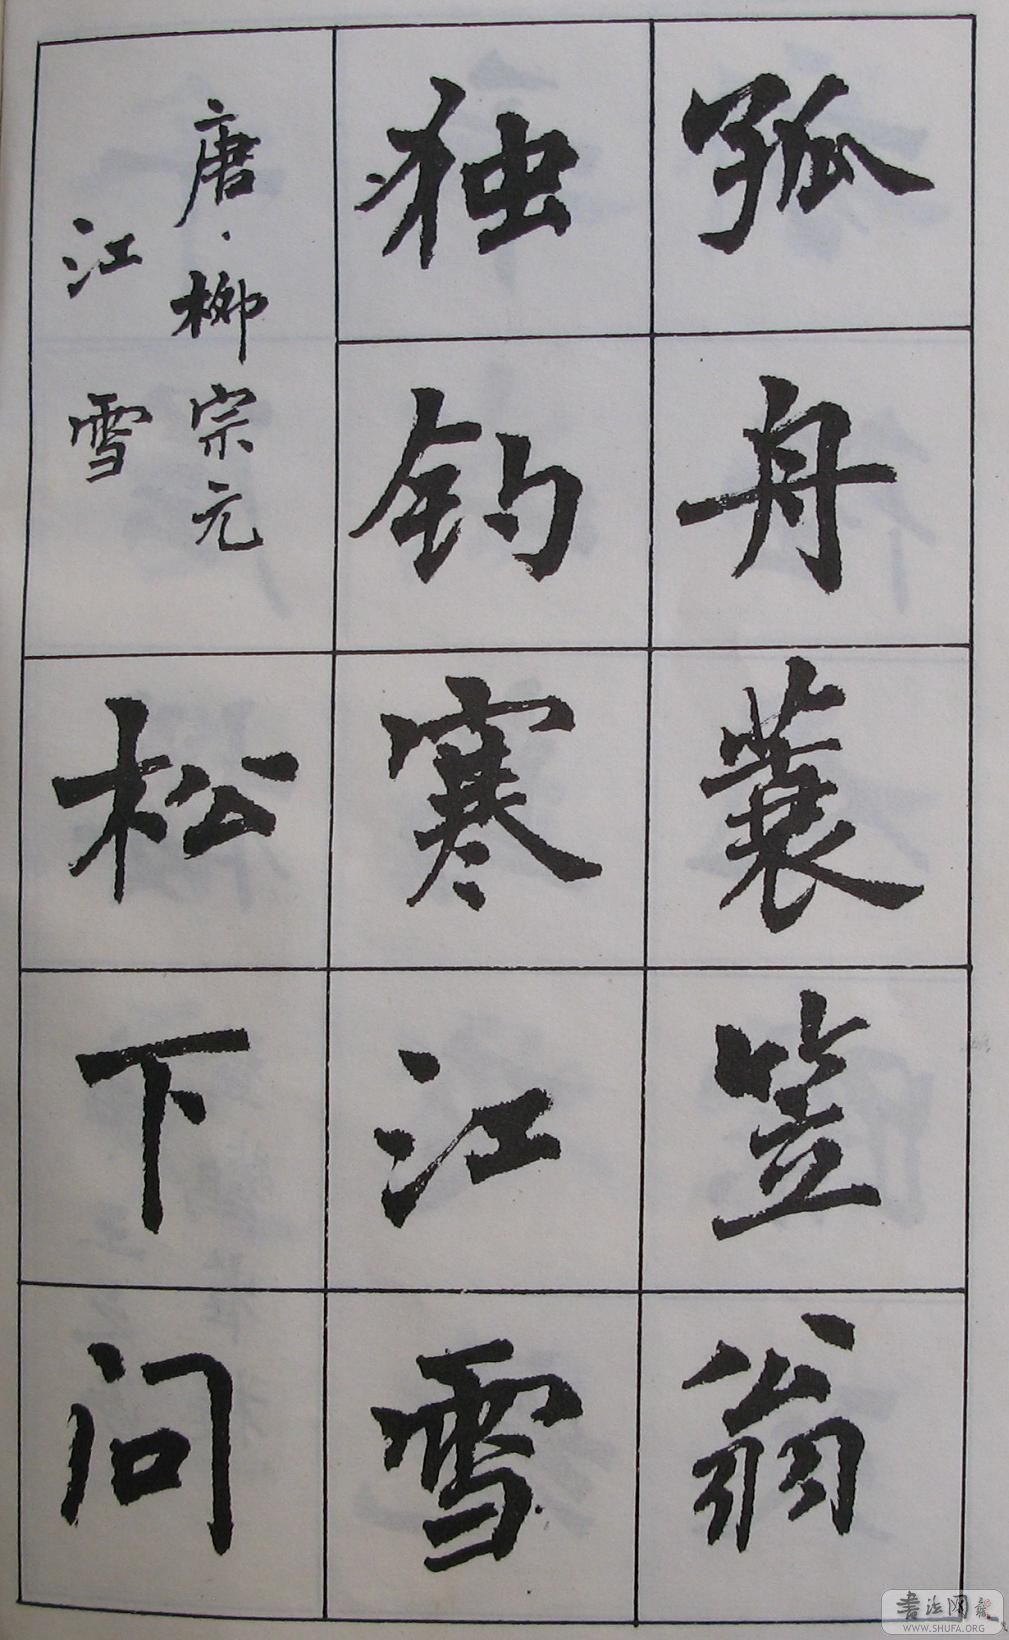 孤舟蓑笠翁
独钓寒江雪
唐·柳宗元
江雪
松下问
书法网
WWW.SHUFA.ORG